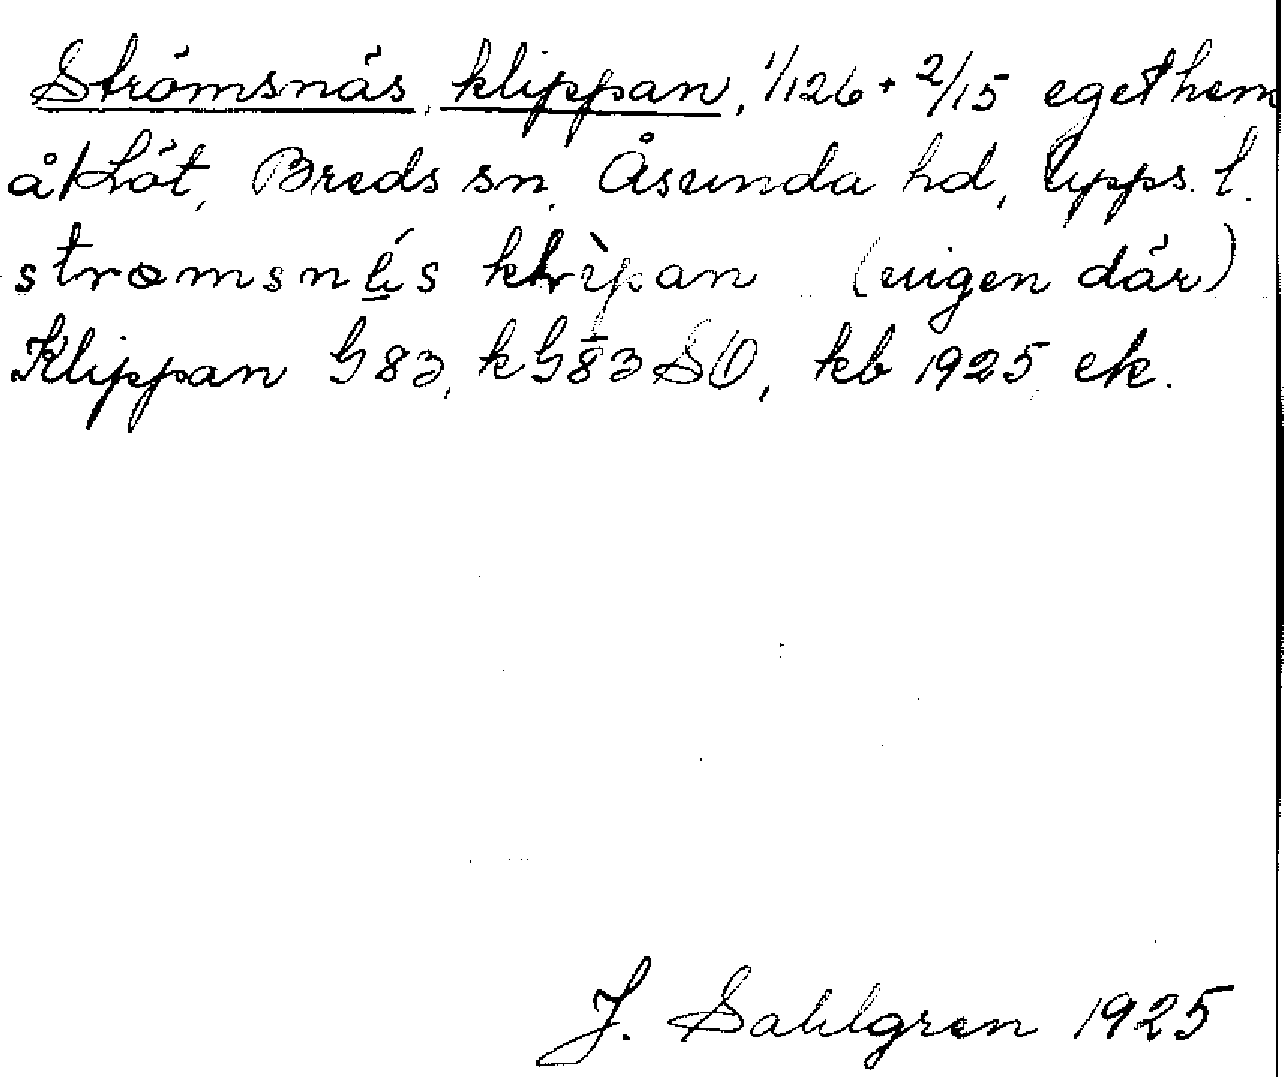 Strömsnäs klippan, 1/126 + 2/15 eget hem
å Löt, Breds sn, Åsunda hd, Upps. l.
klìpan (uigen där)
Klippan G 83, k G 83 SO, kb 1925, ek.
J. Sahlgren 1925